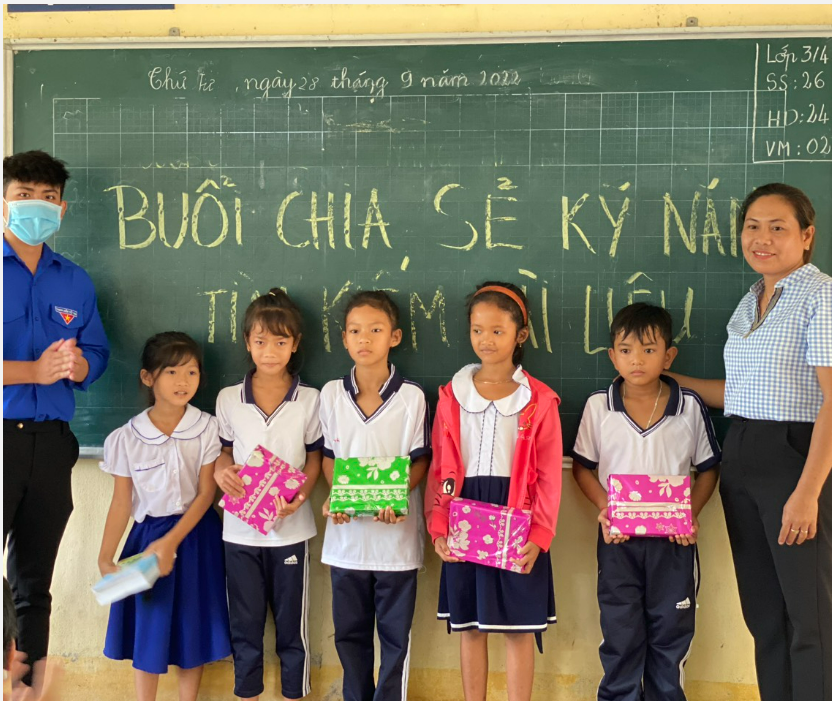 Thứ tư, ngày 28 tháng 9 năm 2022
Lớp 3/4
SS: 26
HD: 24
VM: 02
BUỔI CHIA SẺ KỶ NĂN
TÌM KIẾM TÀI LIỆU